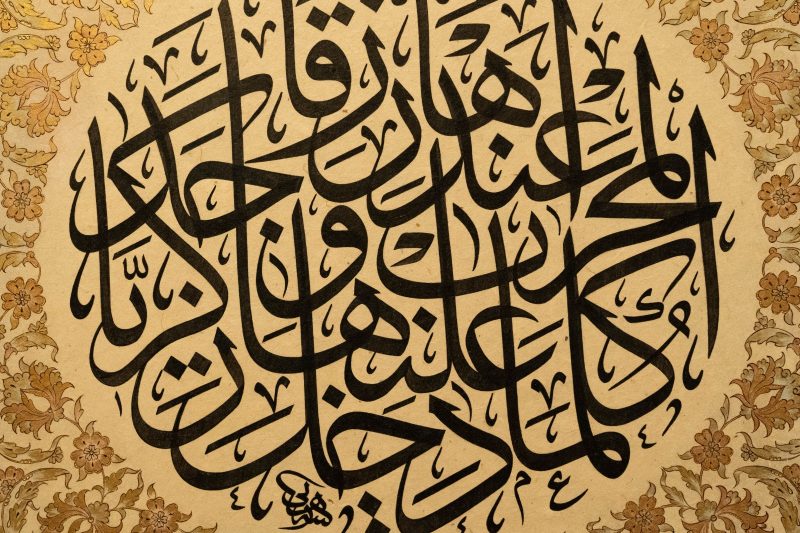 كلما دخل عليها زكريا
المحراب وجد
عندها رزقا